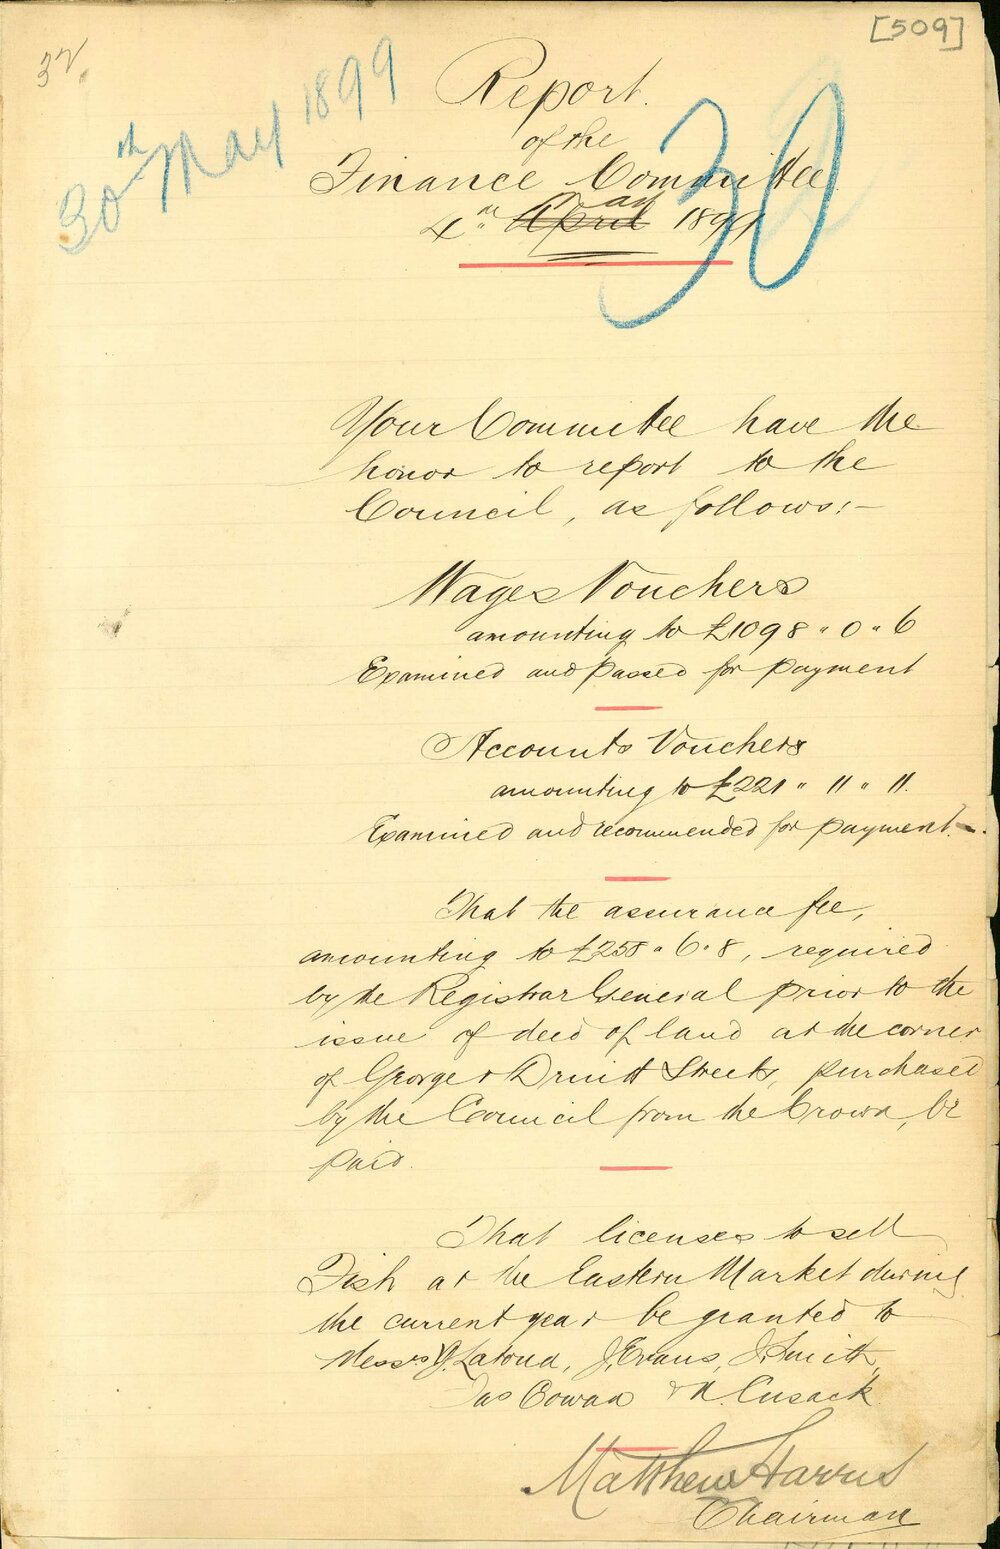 [509]
32.
30th May 1899
30
Report.
of the
Finance Committee
May
4th April 1899
Your Committee have the
honor to report to the
Council, as follows:-
Wages Vouchers
amounting to £1098 " 0 " 6
Examined and passed for payment
Accounts Vouchers
amounting to £221 " 11 " 11.
Examined and recommended for payment.-
That the assurance fee,
amounting to £258 " 6 " 8, required
by the Registrar General prior to the
issue of deed of land at the corner
of George & Druitt Streets, purchased
by the Council from the Crown, be
paid.
That licenses to sell
Fish at the Eastern Market during
the current year be granted to
Messrs Latona, J. Evans, J. Smith,
Jas Cowan & A. Cusack.
Matthew Harris
Chairman